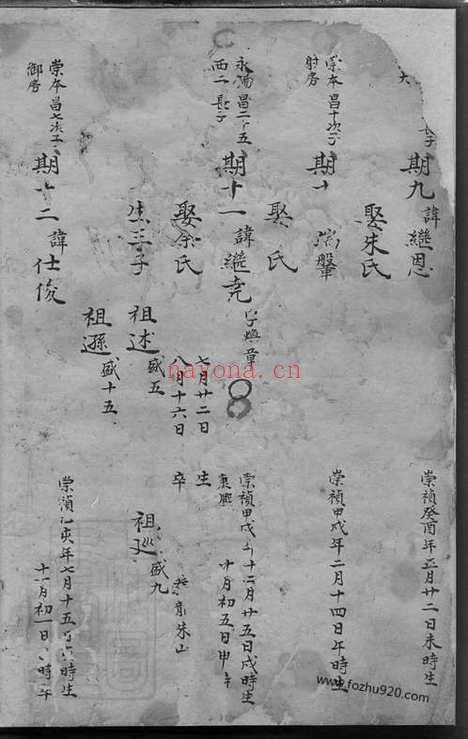 大
期九 諱繼恩
崇禎癸酉年正月廿二日未時生
娶朱氏
崇本昌十次子
射房
期十
肇
崇禎甲戌年二月十四日午時生
娶 氏
永陽昌二
西二 長子
期十一 諱繼堯 字煥章
崇禎甲戌 十二月廿五日戌時生
十月初五日申
娶余氏
七月廿二日 生
八月十六日 卒
朱山
生三子 祖述 盛五
祖巡 盛九
祖遜 盛十五
崇本昌七次子
御房
期十二 諱仕俊
崇禎乙亥年七月十五 時生
十一月初一日 時卒
nayona.cn
www.fozhu920.com